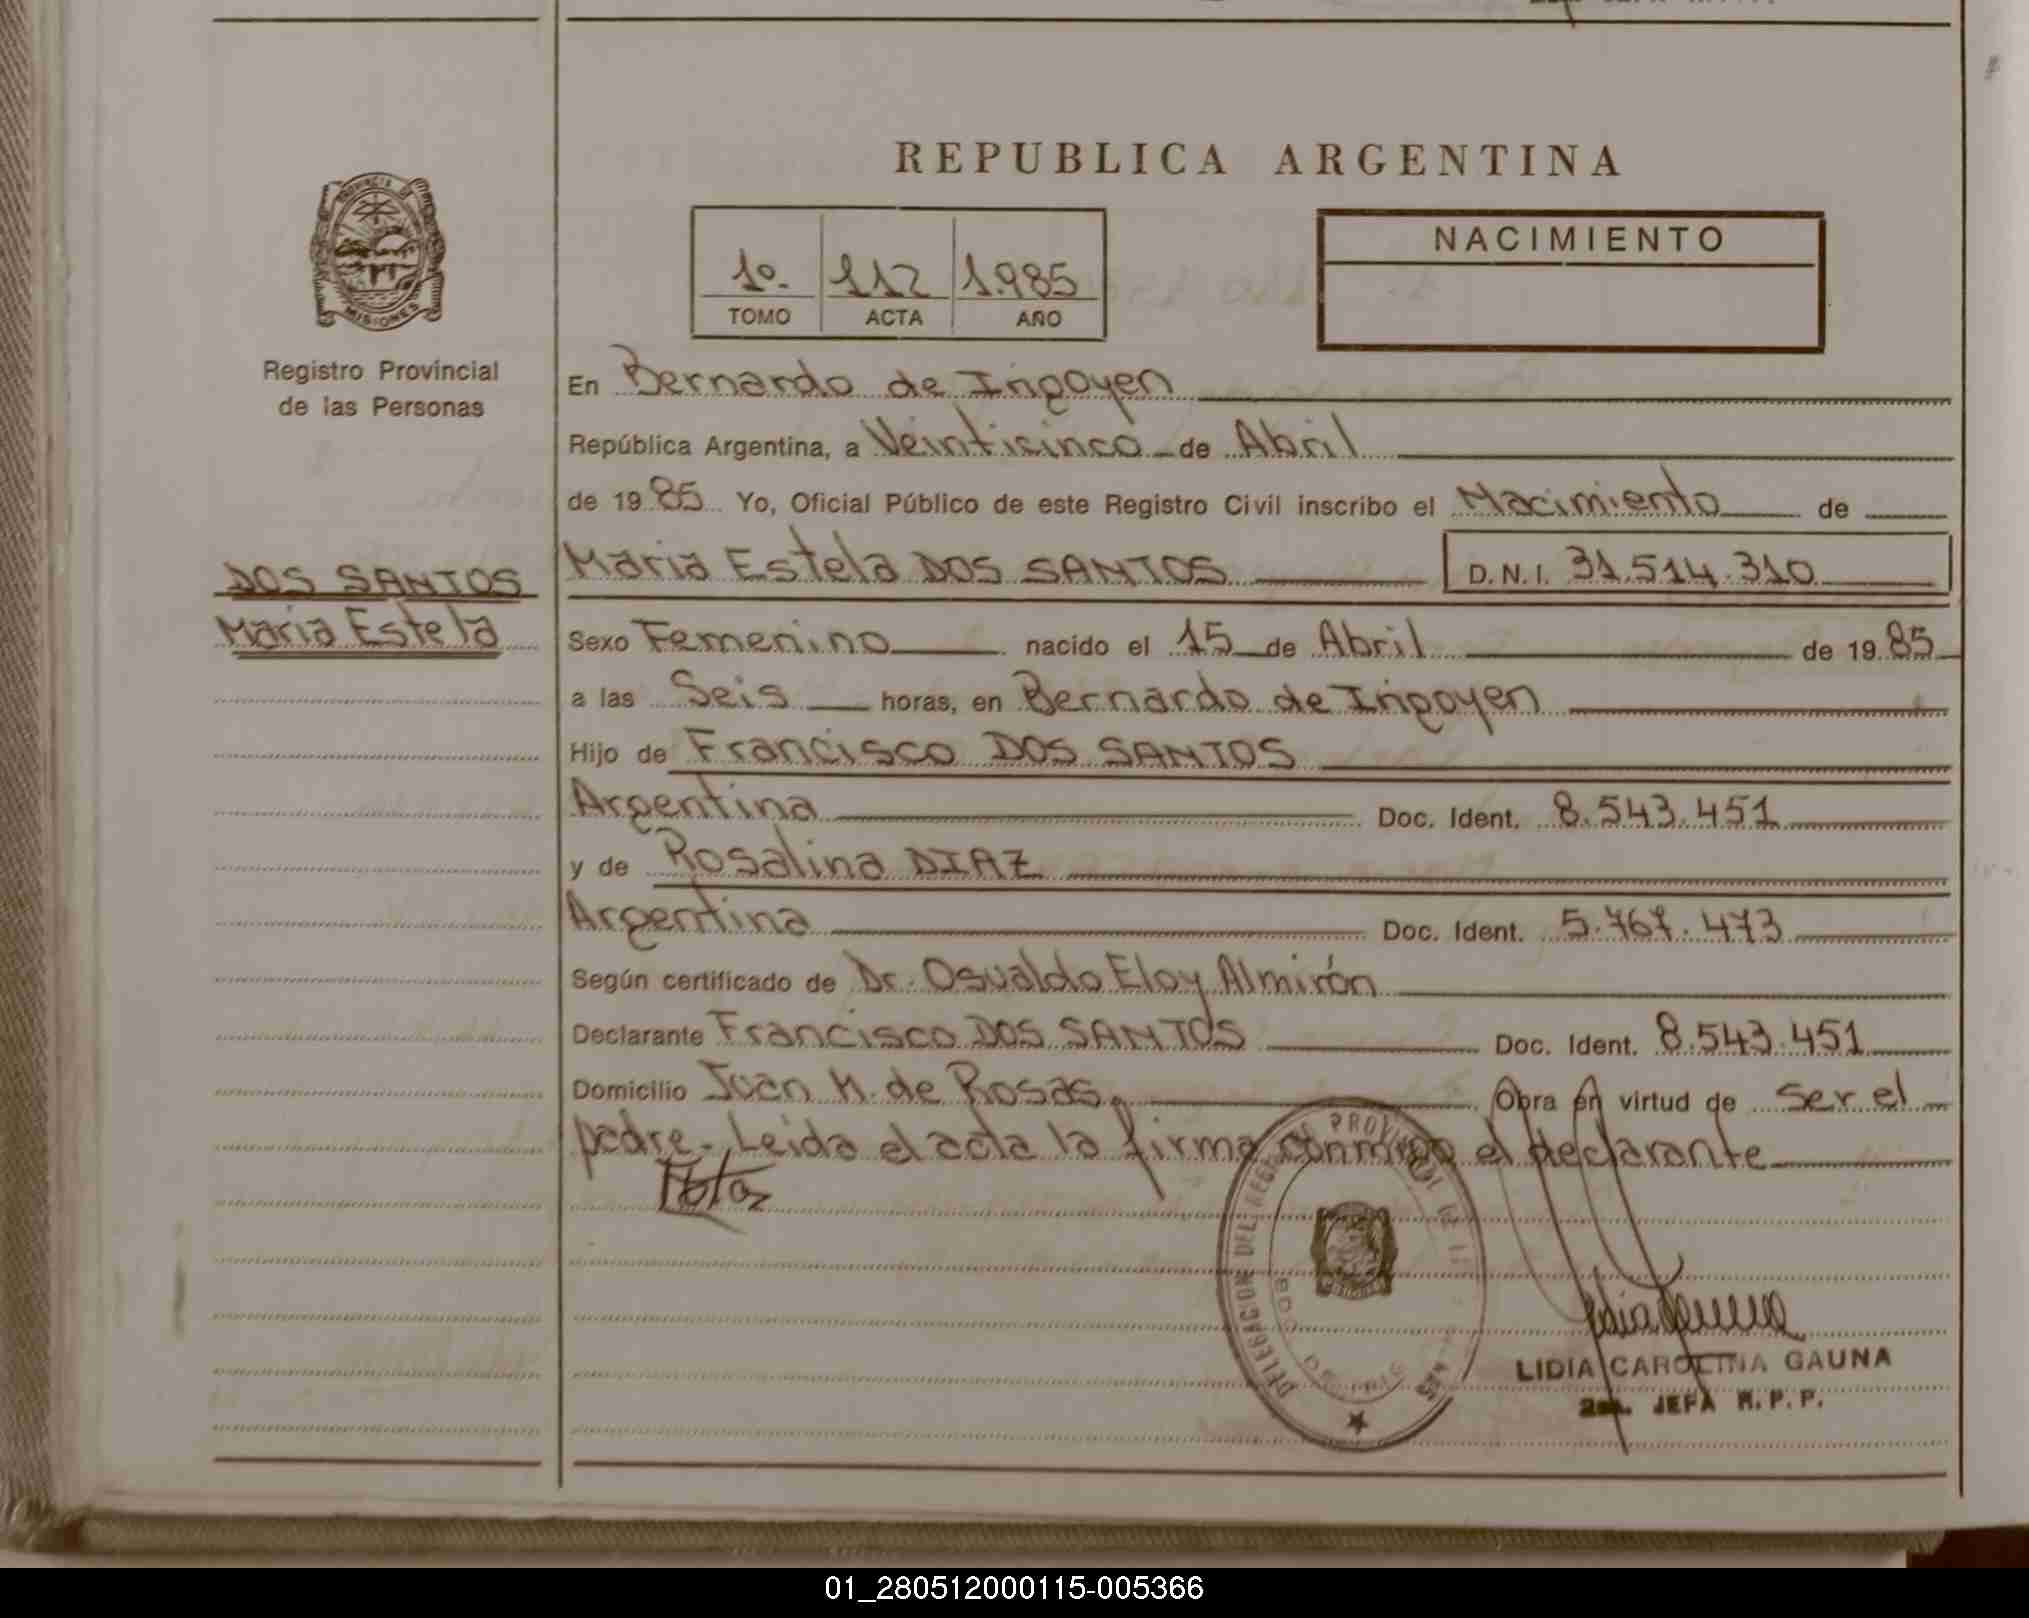 REPUBLICA ARGENTINA
PROVINCIA DE MISIONES
Registro Provincial
de las Personas
1º. 112 1.985
TOMO ACTA AÑO
NACIMIENTO
En Bernardo de Irigoyen
República Argentina, a Veinticinco de Abril
de 1985 Yo, Oficial Público de este Registro Civil inscribo el Nacimiento de
Maria Estela DOS SANTOS D.N.I. 31.514.310
DOS SANTOS
Maria Estela
Sexo Femenino nacido el 15 de Abril de 1985
a las Seis horas, en Bernardo de Irigoyen
Hijo de Francisco DOS SANTOS
Argentina Doc. Ident. 8.543.451
y de Rosalina DIAZ
Argentina Doc. Ident. 5.767.473
Según certificado de Dr. Osvaldo Eloy Almirón
Declarante Francisco DOS SANTOS Doc. Ident. 8.543.451
Domicilio Juan M. de Rosas Obra en virtud de ser el
padre. Leida el acta la firma conmigo el declarante
DELEGACION DEL REG. PROVINCIAL DE
LIDIA CAROLINA GAUNA
JEFA R.P.P.
01_280512000115-005366